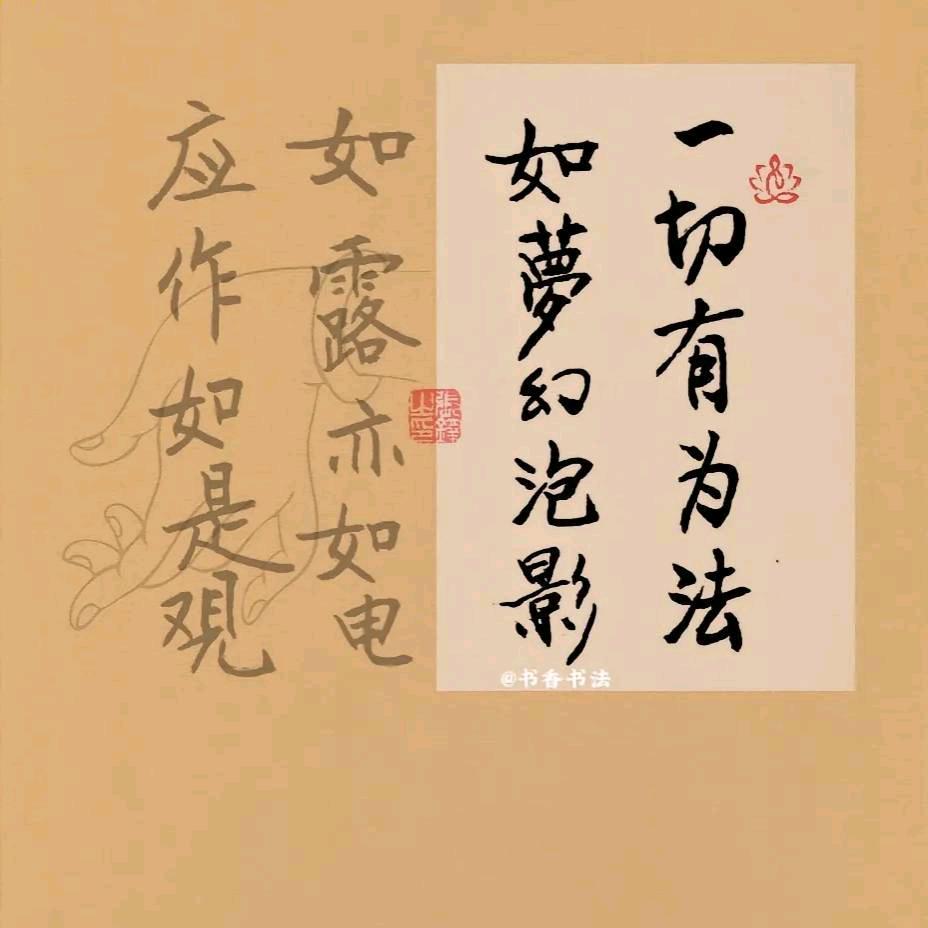 一切有为法
如夢幻泡影
如露亦如电
应作如是观
@书香书法